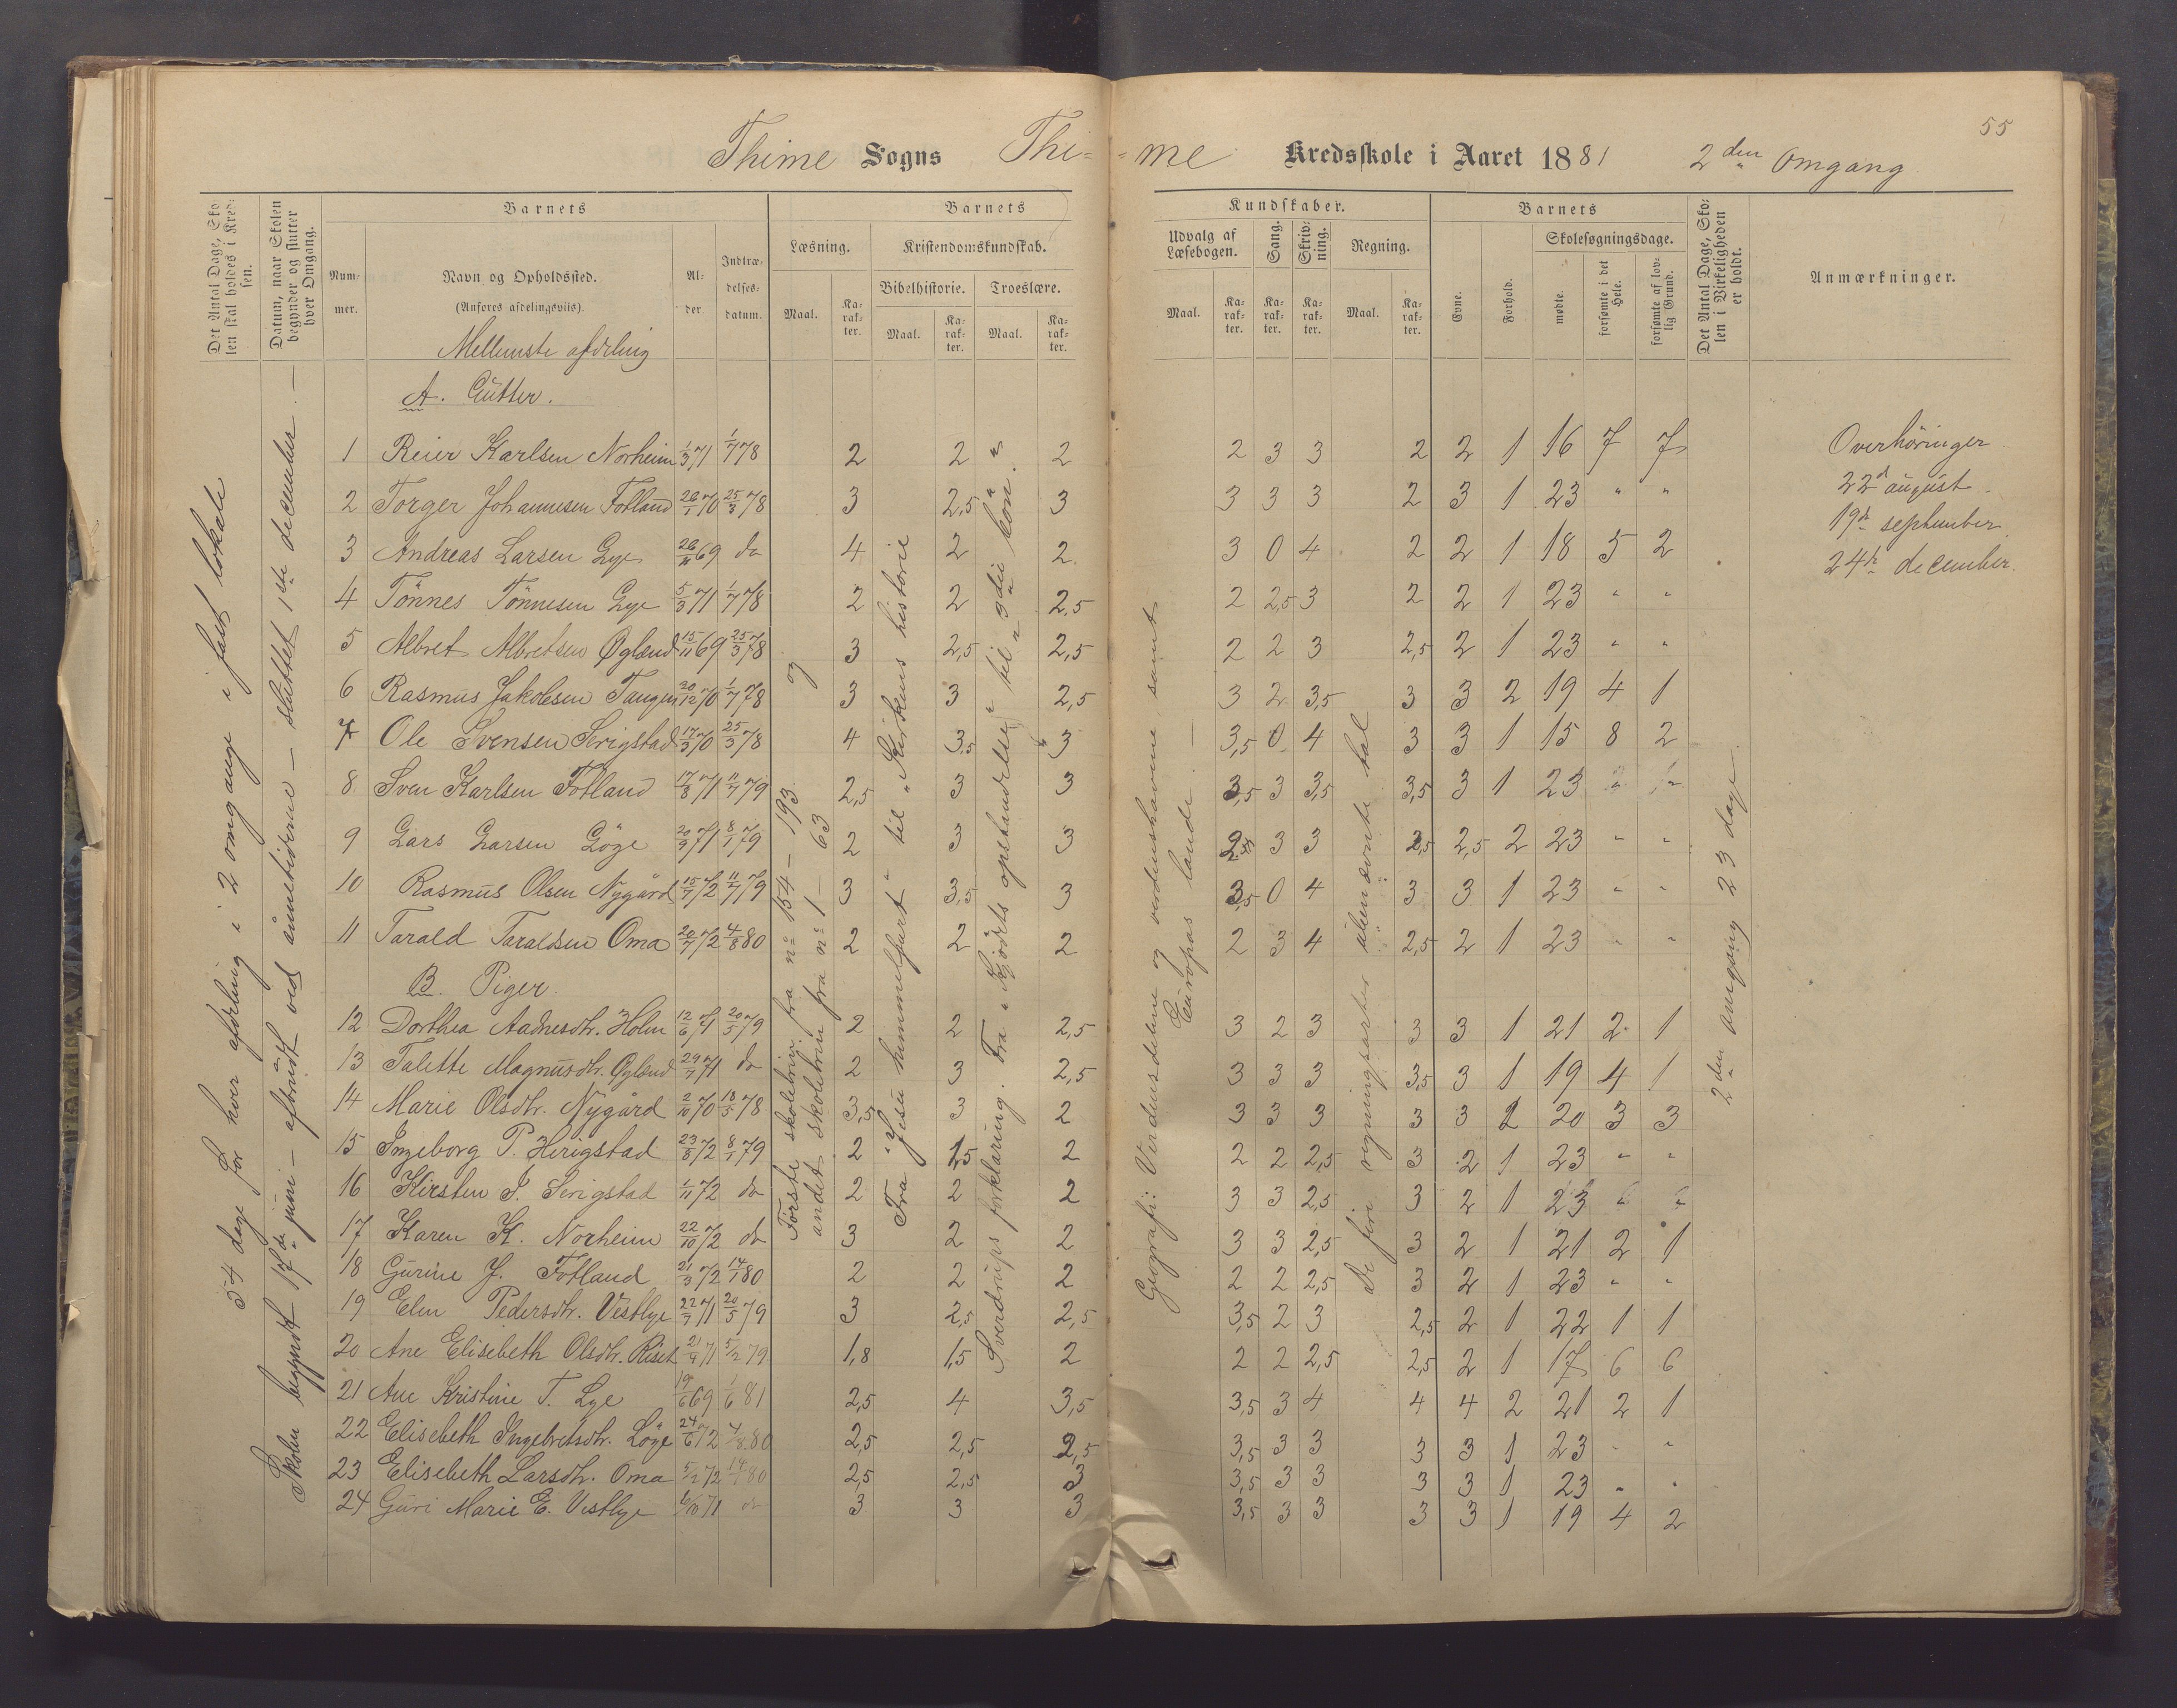 55
Thime Sogns Thi- -me Kredsskole i Aaret 1881 2den Omgang
Det Antal Dage, Skolen skal holdes i Kredsen.
Datum, naar Skolen begynder og slutter hver Omgang.
Barnets
Nummer.
Navn og Opholdssted.
(Anføres afdelingsviis).
Alder.
Indtrædelsesdatum.
Barnets Kundskaber.
Læsning.
Maal.
Karakter.
Kristendomskundskab.
Bibelhistorie.
Maal.
Karakter.
Troeslære.
Maal.
Karakter.
Udvalg af Læsebogen.
Maal.
Karakter.
Sang.
Karakter.
Skrivning.
Karakter.
Regning.
Maal.
Karakter.
Barnets
Evne.
Forhold.
Skolesøgningsdage.
mødte.
forsømte i det Hele.
forsømte af lovlig Grund.
Det Antal Dage, Skolen i Virkeligheden er holdt.
Anmærkninger.
Mellemste afdeling
A. Gutter.
1 Reier Karlsen Norheim 1/3 71 1/7 78 2 2 2 2 3 3 2 2 1 16 7 7
2 Torger Johannesen Fotland 26/1 70 25/3 78 3 2,5 3 3 3 3 2 3 1 23 " "
3 Andreas Larsen Lye 26/11 69 do 4 2 2 3 0 4 2 2 1 18 5 2
4 Tönnes Tönnesen Lye 5/3 71 1/7 78 2 2 2,5 2 2,5 3 2 2 1 23 " "
5 Albret Albretsen Øgland 15/11 69 25/3 78 3 2,5 2,5 2 2 3 2,5 2 1 23 " "
6 Rasmus Jakobsen Tangen 20/12 70 1/7 78 3 3 2,5 3 2 3,5 3 3 2 19 4 1
7 Ole Svensen Serigstad 17/3 70 25/3 78 4 3,5 3 3,5 0 4 3 3 1 15 8 2
8 Sven Karlsen Fotland 17/8 71 11/7 79 2,5 3 3 3,5 3 3,5 3,5 3 1 23 " "
9 Lars Larsen Löge 20/9 71 8/1 79 2 3 3 2,5 3 3 2,5 2,5 2 23 " "
10 Rasmus Olsen Nygård 15/7 72 11/7 79 3 3,5 3 3,5 0 4 3 3 1 23 " "
11 Tarald Taraldsen Oma 20/7 72 4/8 80 2 2 2 2 3 4 2,5 2 1 23 " "
B. Piger.
12 Dorthea Aadnesdtr. Holm 12/6 71 20/5 79 2 2 2,5 3 2 3 3 3 1 21 2 1
13 Talette Magnusdtr. Øgland 29/7 71 do 2 3 2,5 3 3 3 3,5 3 1 19 4 1
14 Marie Olsdtr. Nygård 2/10 70 13/5 78 3,5 3 2 3 3 3 3 3 2 20 3 3
15 Ingeborg P. Herigstad 23/8 72 8/1 79 2 1,5 2 2 2 2,5 3 2 1 23 " "
16 Kirsten J. Serigstad 1/11 72 do 2 2 2 3 3 2,5 3 2 1 23 " "
17 Karen K. Norheim 22/10 72 do 3 2 2 3 3 2,5 3 2 1 21 2 1
18 Gurine J. Fotland 21/3 72 14/1 80 2 2 2 2 2 2,5 3 2 1 23 " "
19 Elen Pedersdtr. Vestlye 22/7 71 20/5 79 3 2,5 2,5 3,5 2 3 2,5 2 1 22 1 1
20 Ane Elisebeth Olsdtr. Riset 21/9 71 5/2 79 1,8 1,5 2 2 2 2,5 2,5 2 1 17 6 6
21 Ane Kristine T. Lye 19/6 69 1/6 81 2,5 4 3,5 3,5 3 4 4 4 2 21 2 1
22 Elisebeth Ingebretsdtr. Löge 24/6 72 4/8 80 2,5 2,5 2,5 3,5 3 3 3 3 1 23 " "
23 Elisebeth Larsdtr. Oma 5/2 72 14/1 80 2,5 2,5 3 3,5 3 3 3 3 1 23 " "
24 Guri Marie E. Vestlye 6/10 71 do 3 3 3 3,5 3 3 3 3 1 19 4 2
54 dage for hver afdeling i 2 omgange i fast lokale
Skolen begyndt 17de juni – afbrudt ved ånnetiderne – sluttet 1ste december. –
Förste skoletrin fra no 154 – 193 og
andet skoletrin fra no 1 – 63
Fra "Jesu himmelfart" til "Kirkens historie"
Sverdrups forklaring. Fra "Kjödets opstandelse" til "3die bön."
Geografi: Verdensdelene og verdenshavene samt
Europas lande. –
De fire regningsarter ubenævnte tal
2den omgang 23 dage
Overhöringer
22d august
19de september
24de december.